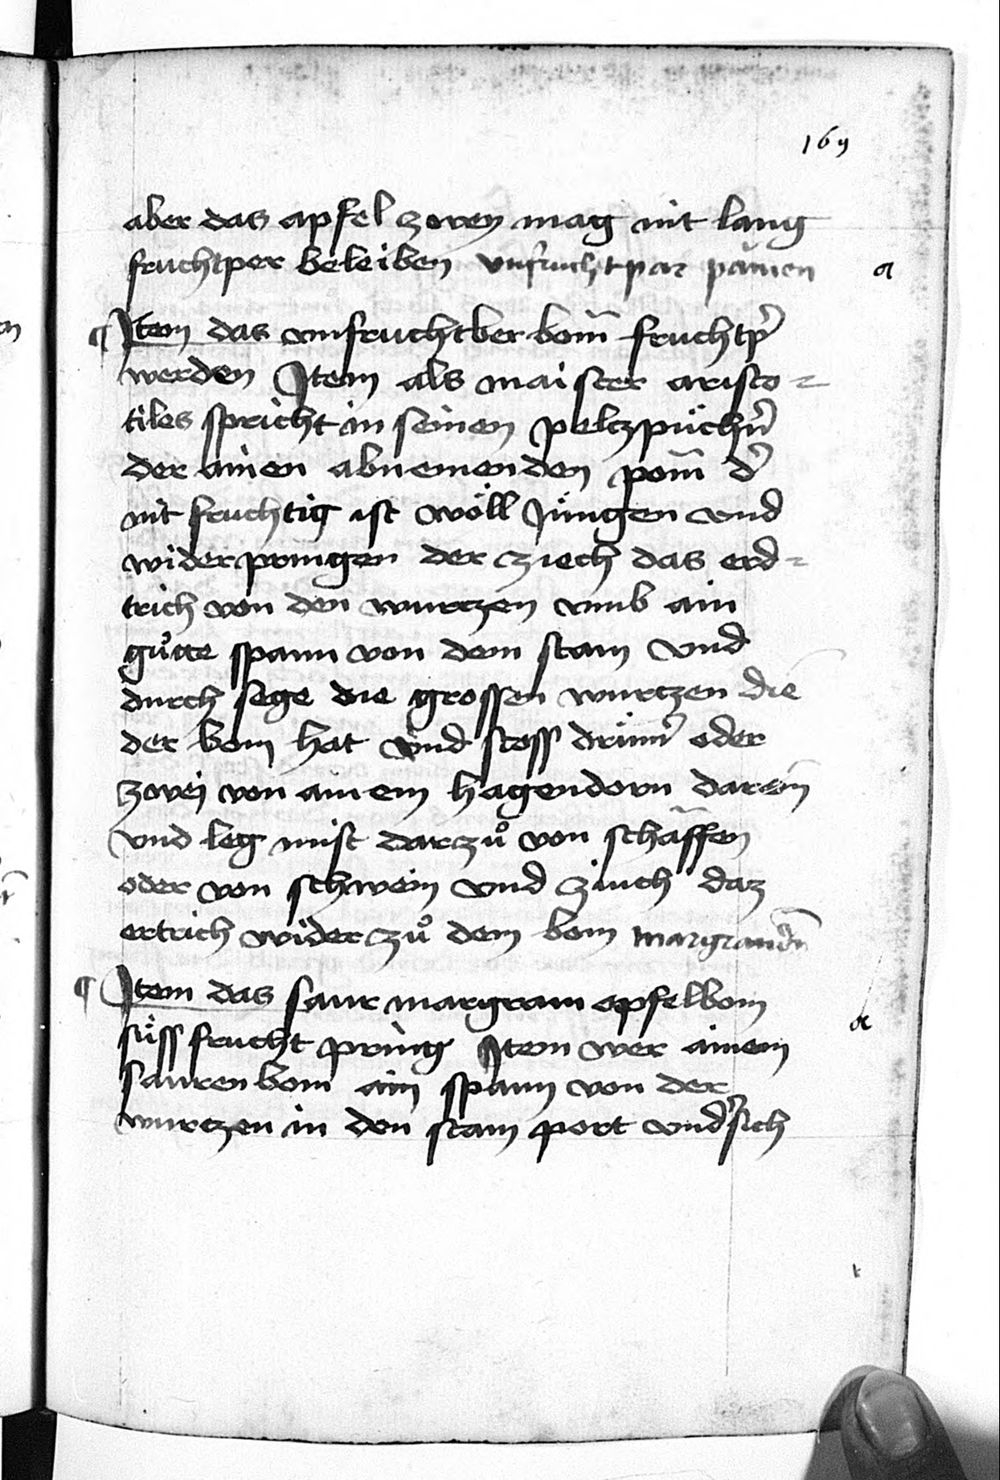 169
aber das apfel zoren mag nit lang
fruchtper beleiben vnfruchtpar pämen
¶ Item das vnfruchtber bom̄ fruchtp̄
werden Item als maister aristo-
tiles spricht in seinen pelczpüchen̄
der ainen abnemenden pom̄ d̄
nit fruchtig ist wöll Jüngen vnd
wider pringen der ziech das erd-
trich von den wurczen vmb ain
gůte spann von dem stam vnd
durch sege die grossen wurtzen die
der bom hat vnd stoss dräm̄ oder
zwej von ainem hagendorn darein
vnd leg mist darzů von schaffen
oder von schwein vnd zeuch daz
ertrich wider zů dem bom
¶ Item das saur margram opfelbom
süss frucht pring Item wer ainem
sauren bom ain spann von der
wurczen in den stam port vnd sich